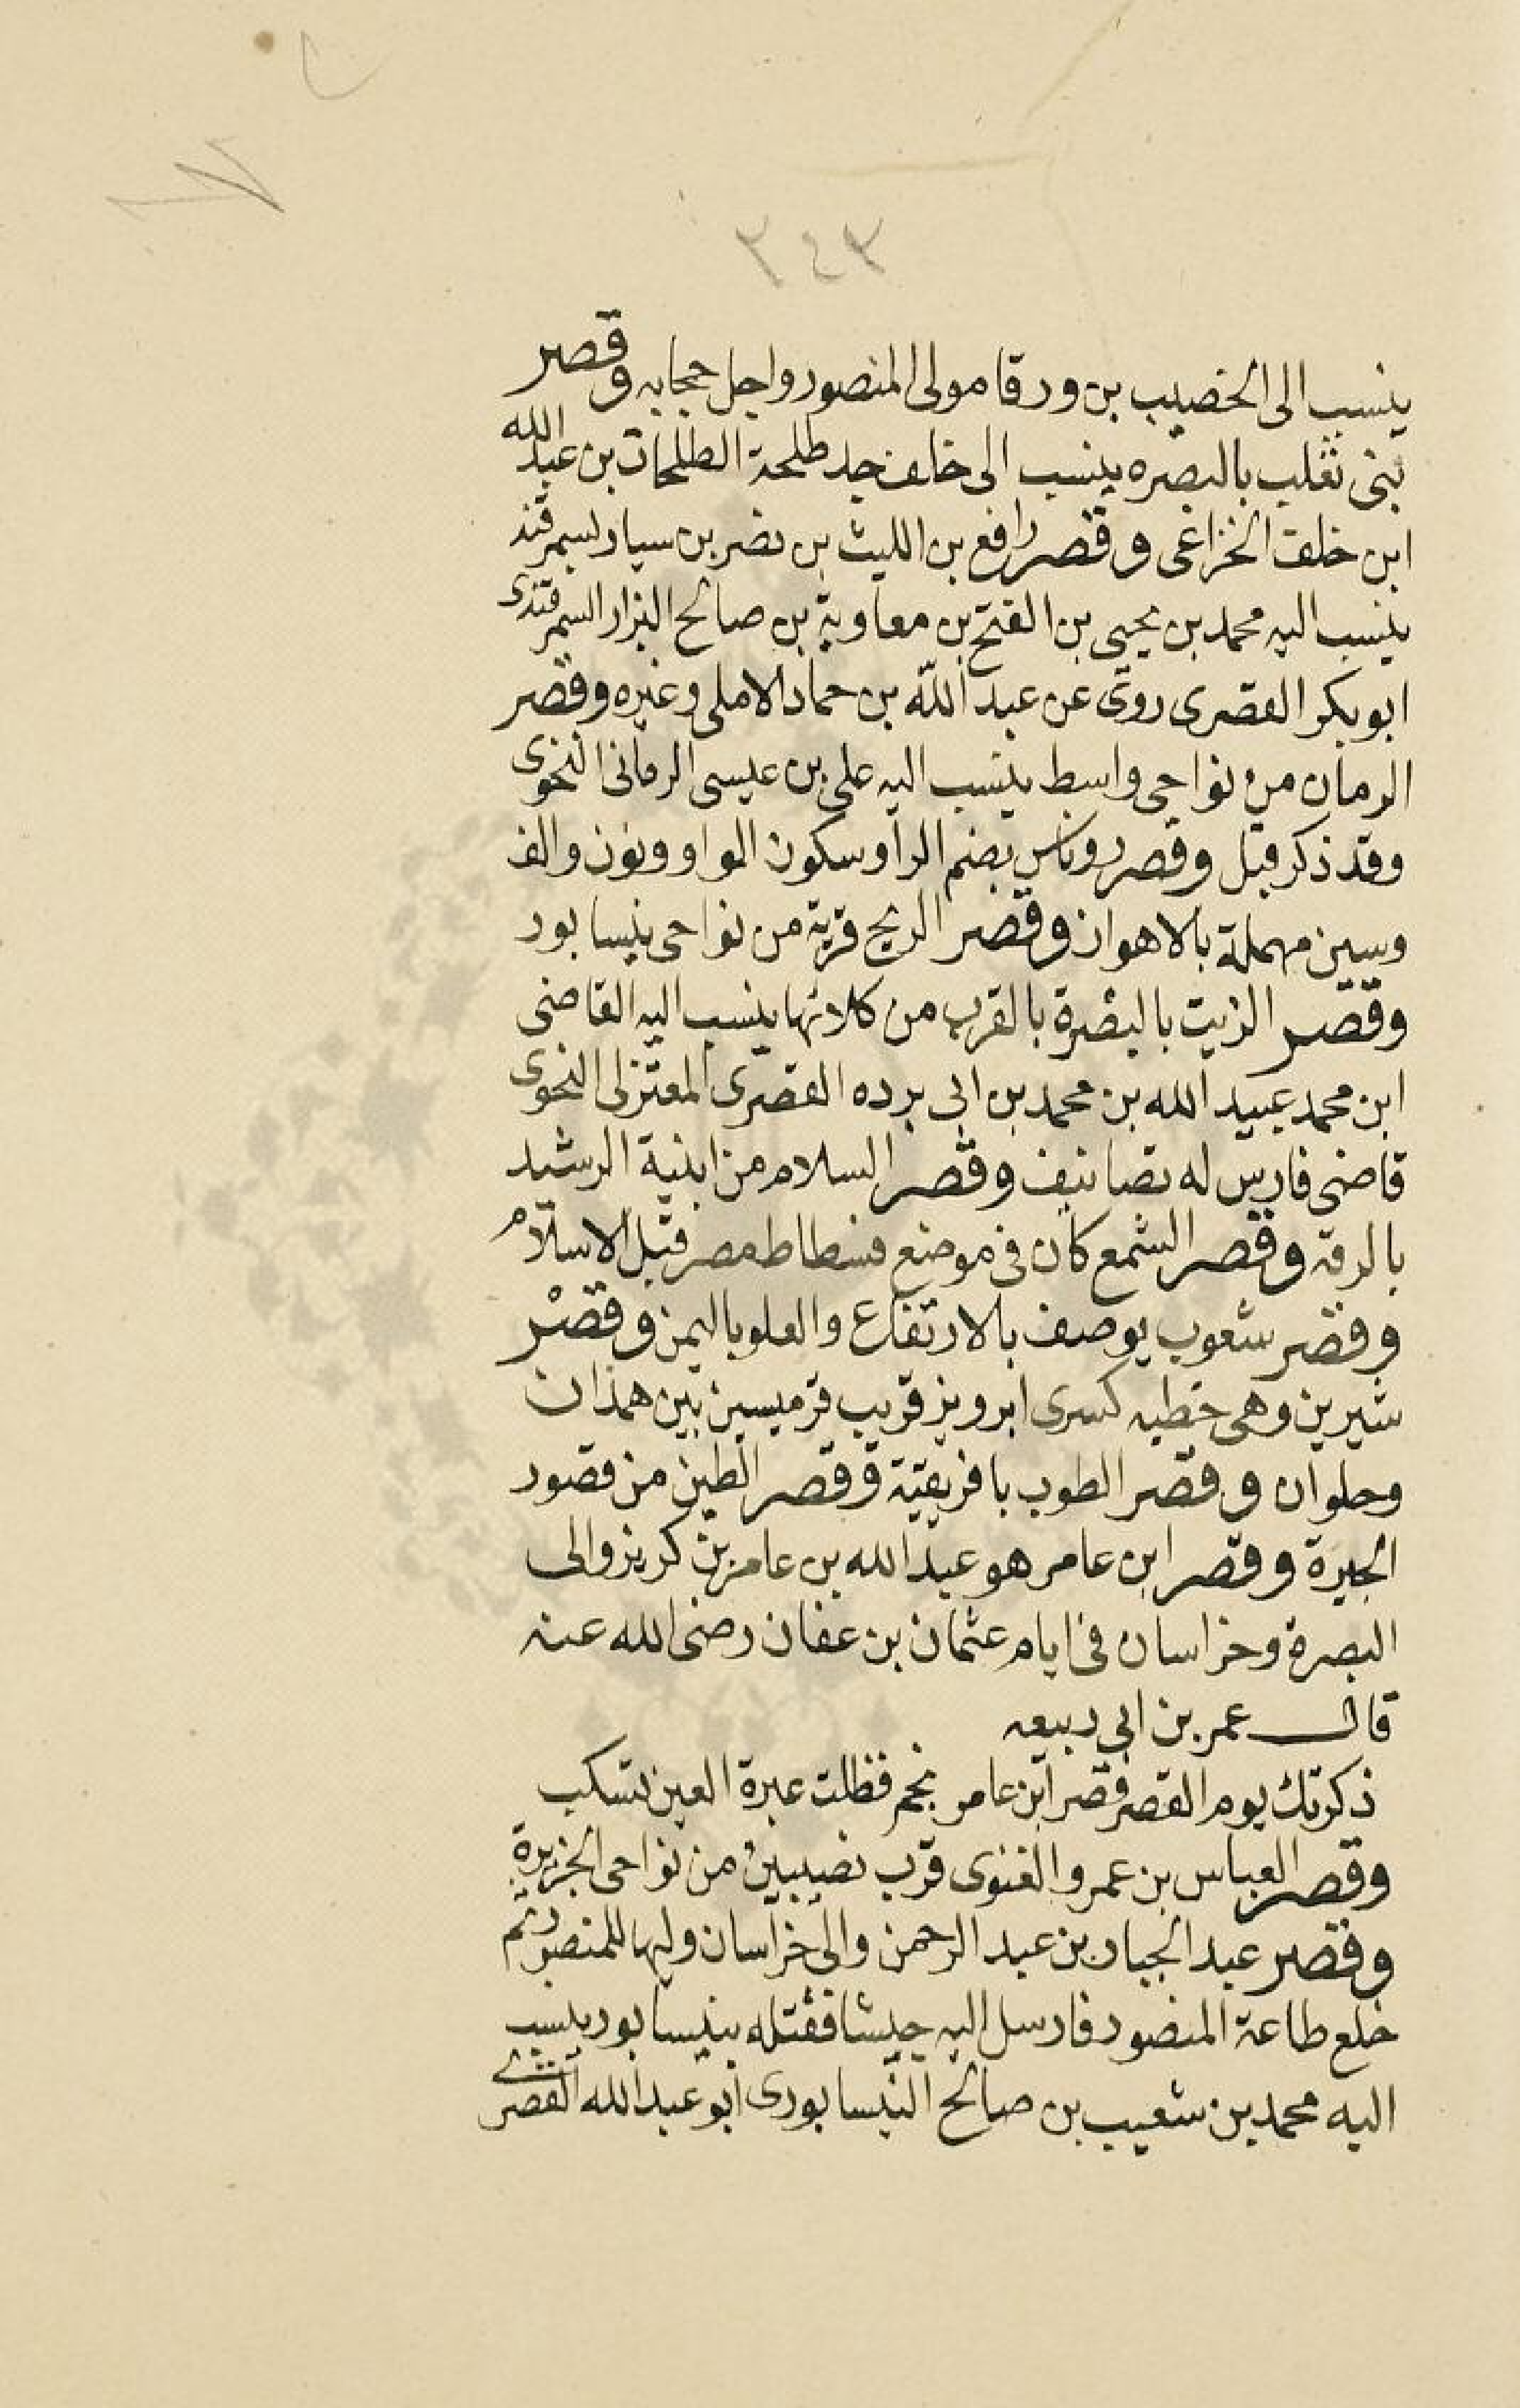 ٣٤٣
ينسب الى الخصيب بن ورقا مولى المنصور واجل حجابه وقصر
بنى تغلب بالبصره ينسب الى خلف جد طلحة الطلحات بن عبد الله
ابن خلف الخزاعى وقصر رافع بن الليث بن نصر بن سيار بسمرقند
ينسب اليه محمد بن يحيى بن الفتح بن معاوية بن صالح البزار السمرقندى
ابو بكر القصرى روى عن عبد الله بن حماد الاملى وغيره وقصر
الرمان من نواحى واسط ينسب اليه على بن عيسى الرمانى النحوى
وقد ذكر قبل وقصر روناس بضم الرا وسكون الواو ونون والف
وسين مهملة بالاهواز وقصر الريح قرية من نواحى نيسابور
وقصر الزيت بالبصرة بالقرب من كلائها ينسب اليه القاضى
ابن محمد عبيد الله بن محمد بن ابى برده القصرى المعتزلى النحوى
قاضى فارس له تصانيف وقصر السلام من ابنية الرشيد
بالرقه وقصر الشمع كان فى موضع فسطاط مصر قبل الاسلام
وقصر شعوب يوصف بالارتفاع والعلو باليمن وقصر
شيرين وهى حظيه كسرى ابرويز قريب قرميسين بين همذان
وحلوان وقصر الطوب بافريقية وقصر الطين من قصور
الحيرة وقصر ابن عامر هو عبد الله بن عامر بن كريز والى
البصرة وخراسان فى ايام عثمان بن عفان رضى الله عنه
قال عمر بن ابى ربيعه
ذكرتك يوم القصر قصر ابن عامر بخم فظلت عبرة العين تسكب
وقصر العباس بن عمرو الغنوى قرب نصيبين من نواحى الجزيرة
وقصر عبد الجبار بن عبد الرحمن والى خراسان وليها للمنصور ثم
خلع طاعة المنصور فارسل اليه جيشا فقتله بنيسابور ينسب
اليه محمد بن شعيب بن صالح النيسابورى ابو عبد الله القصرى